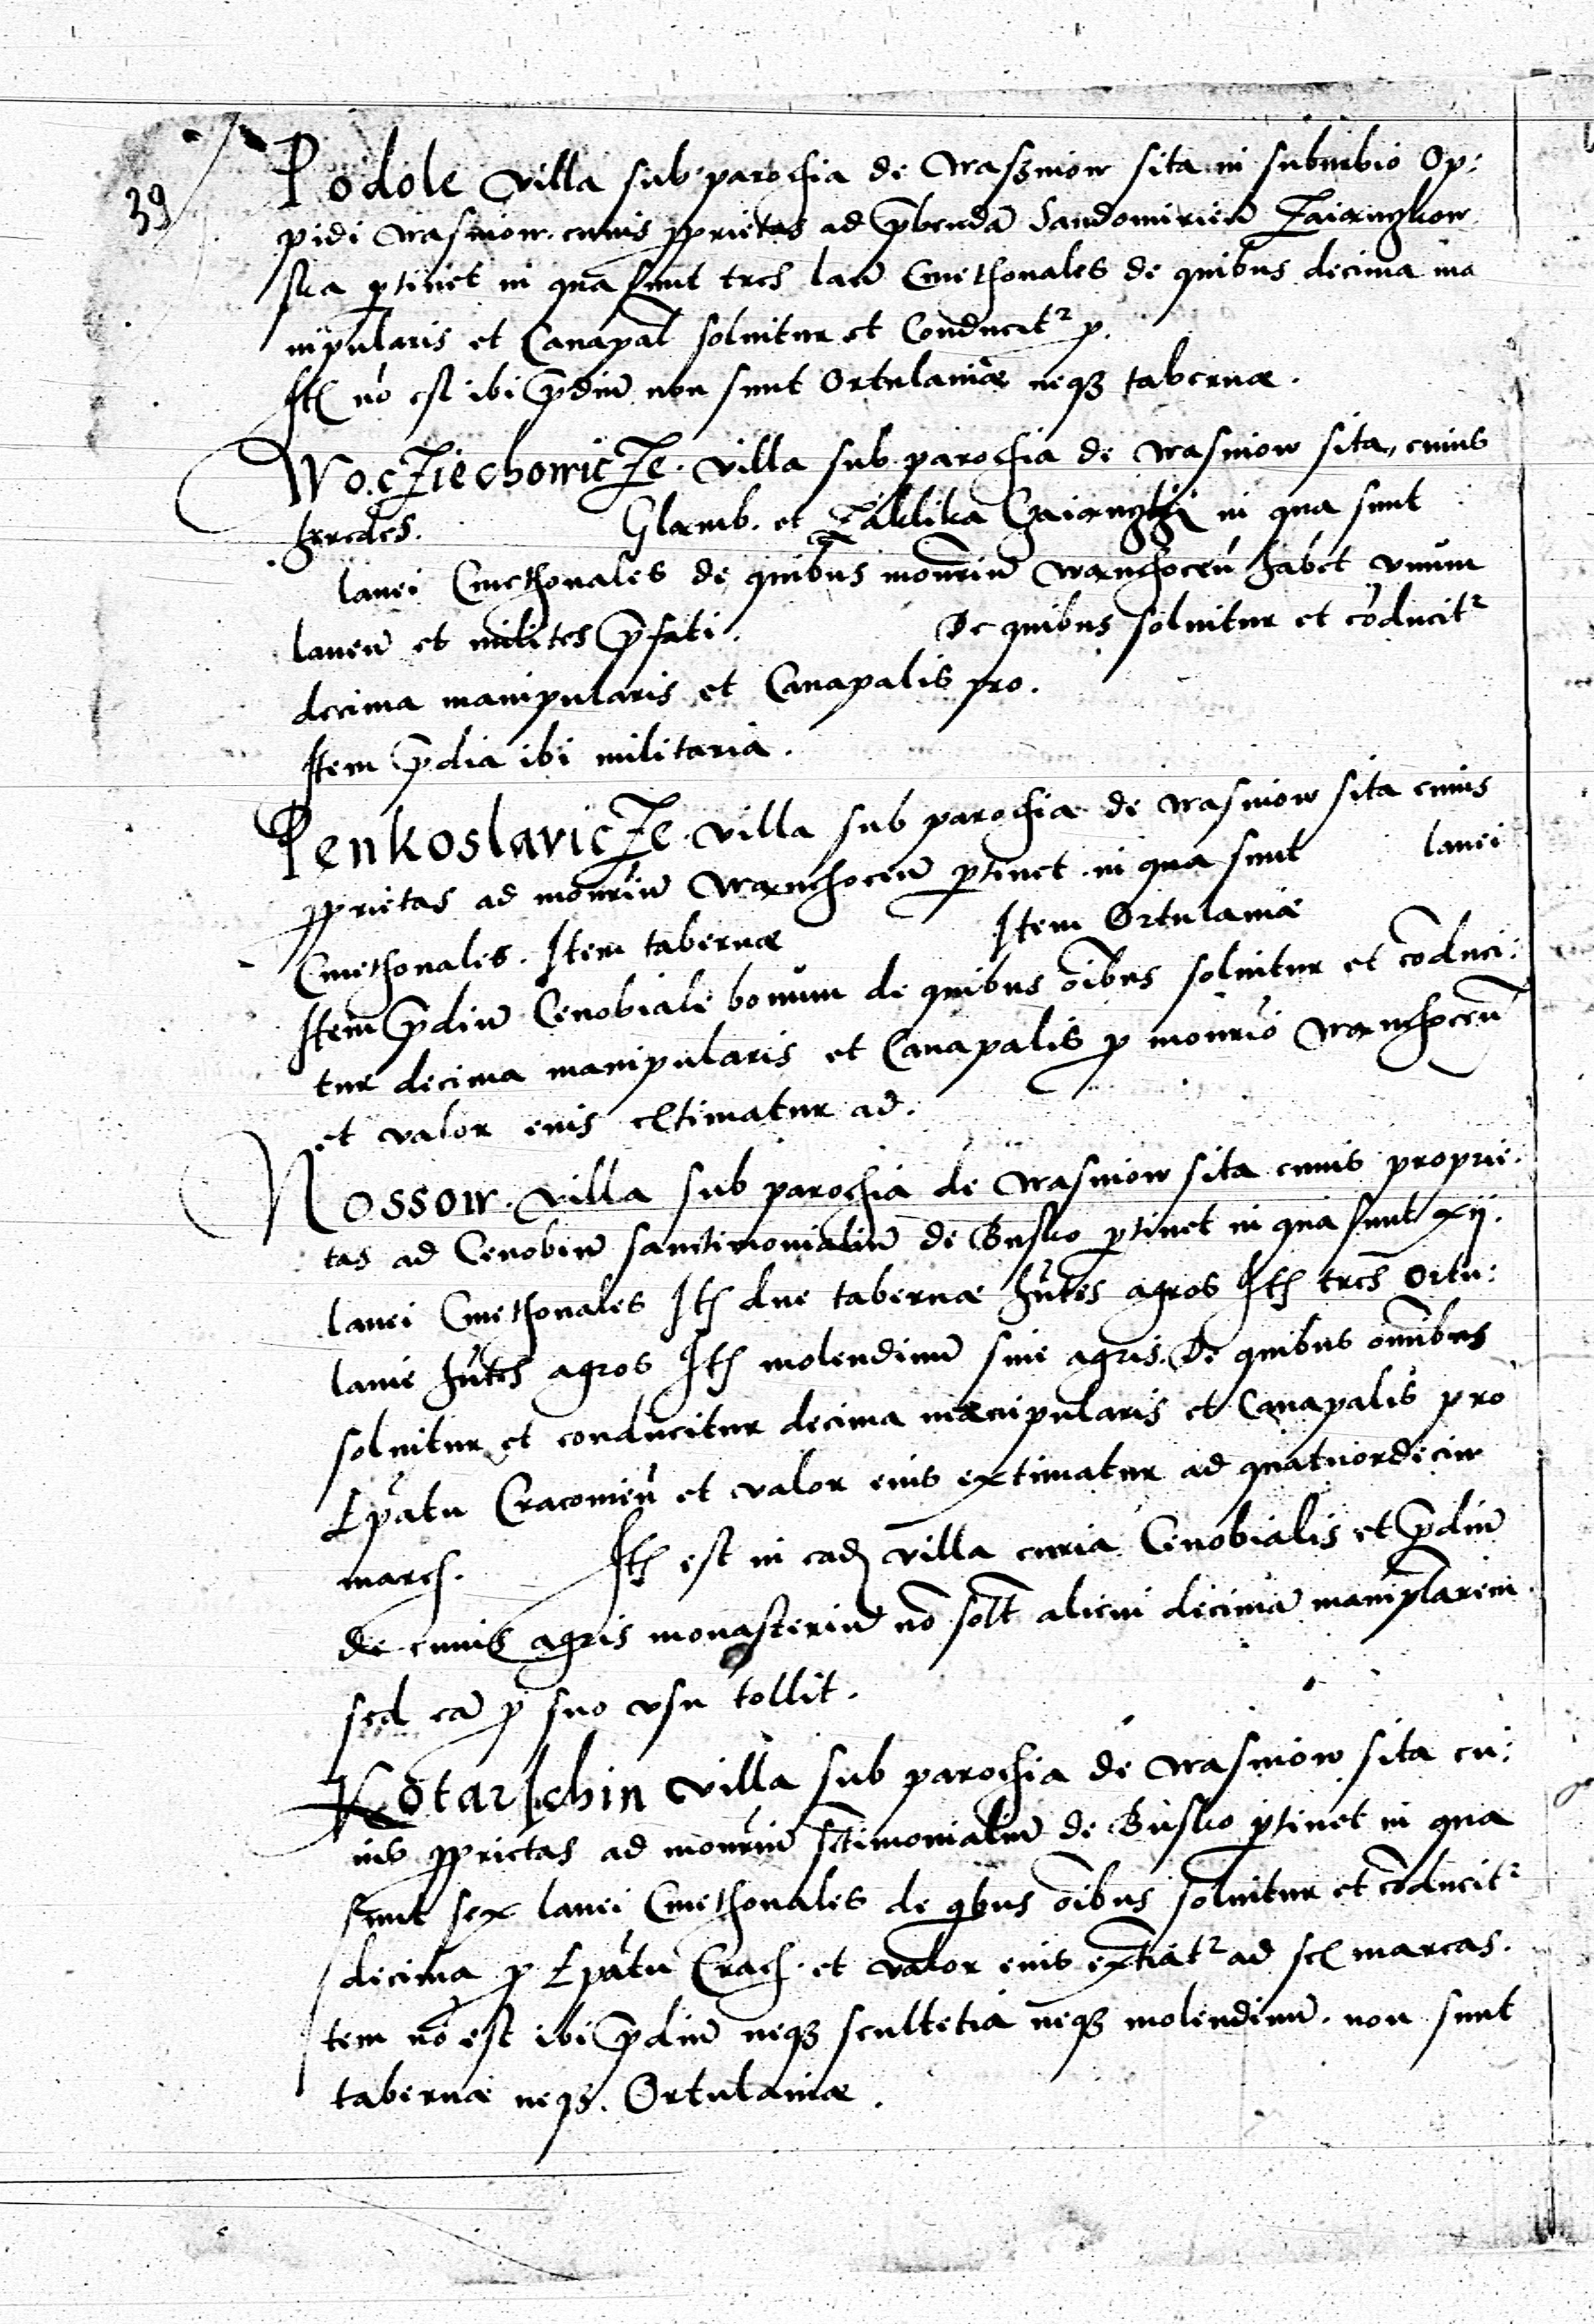 39
Podole villa sub parochia de Waszniow sita in suburbio Op:
pidi Wasniow. cuius ꝓprietas ad p̄bendā Sandomirien̄ Zaiangkow
ska ꝑtinet in qua sunt tres lanei Cmethonales de quibus decima ma
nipularis et Canapal̄ soluitur et Conducit² ꝓ.
Itē nō est ibi p̄diū non sunt Ortulaniæ neqꝫ tabernæ.
WocziechowicZe. villa sub parochia de Wasniow sita, cuius
heredes. Glamb. et Zaklika in qua sunt
lanei Cmethonales de quibus monr̄iū Wanchoceñ habet vnum
laneū et milites p̄fati. De quibus soluitur et cōducit²
decima manipularis et Canapalis pro.
Item p̄dia ibi militaria.
PenkoslavicZe. villa sub parochia de Wasniow sita cuius
ꝓprietas ad monr̄iū Wanchoceñ ꝑtinet. in qua sunt lanei
Cmethonales. Item tabernæ Item Ortulaniæ
Item p̄diū Cenobiale bonum de quibus oībus soluitur et cōduci:
tur decima manipularis et Canapalis ꝓ monr̄io Wanchoceñ
et valor eius extimatur ad.
Nossow. villa sub parochia de Wasniow sita cuius proprie:
tas ad Cenobiū sanctimonialiū de Busko ꝑtinet in qua sunt xij.
lanei Cmethonales Itē due tabernæ hñtes agros Itē tres Ortu:
lanie hñtes agros Itē molendinū sine agris. De quibus omībus
soluitur et conducitur decima manipularis et Canapalis pro
Ep̄atu Cracovieñ et valor eius extimatur ad quatuordecim
marcȩ. Itē est in eadē villa curia Cenobialis et p̄diū
de cuius agris monasteriū nō solt̄ alicui decimā manipl̄arem
sed eā ꝓ suo vsu tollit.
Kotarschin villa sub parochia de Wasniow sita cu:
ius ꝓprietas ad monr̄iū sctimonialiū de Busko ꝑtinet in qua
sunt sex lanei Cmethonales de qbus oībus soluitur et cōducit²
decima ꝓ Ep̄atu Crac̄. et valor eius extiāt² ad sex marcas.
Item nō est ibi p̄diū neqꝫ scultetia neqꝫ molendinū. non sunt
tabernæ neqꝫ. Ortulaniæ.